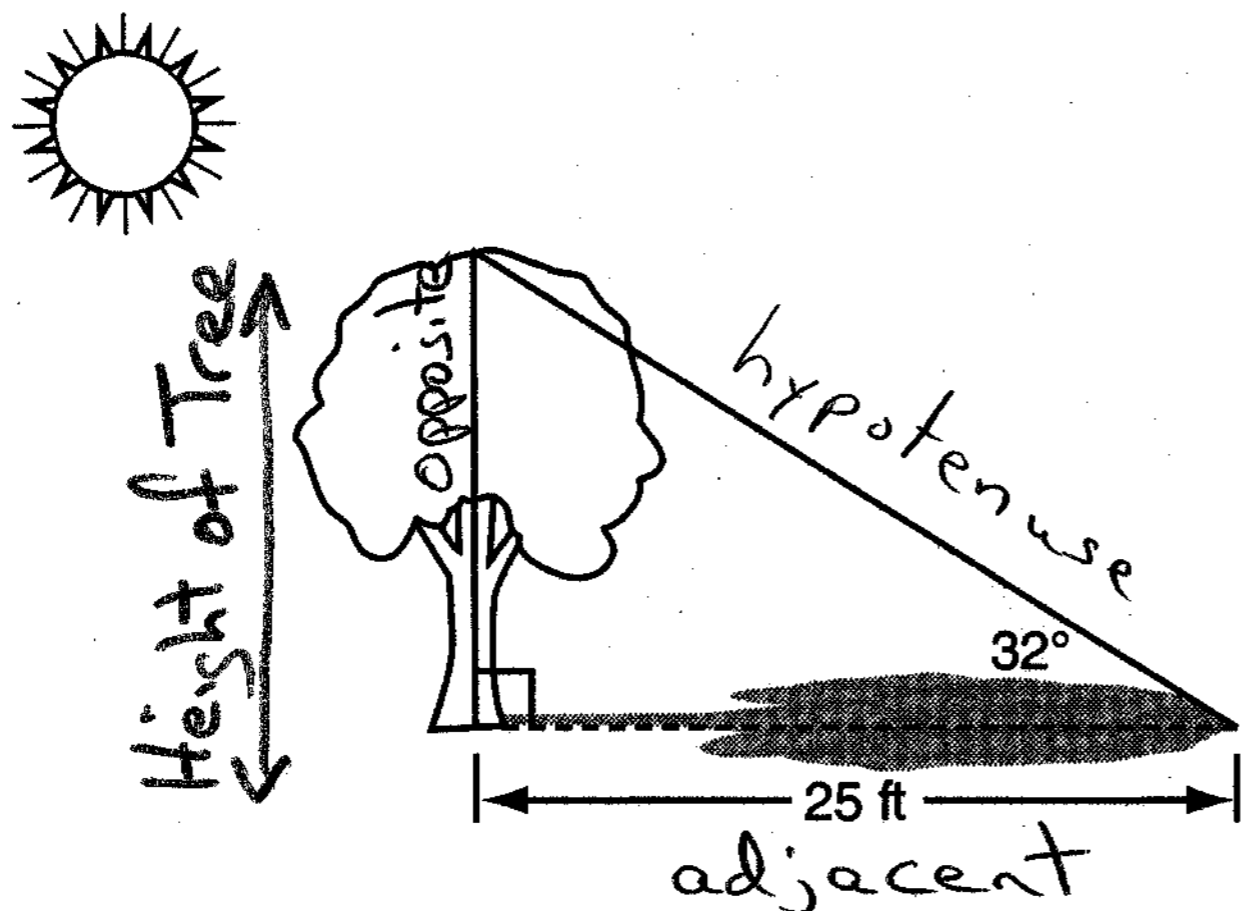 Height of Tree
opposite
hypotenuse
32°
25 ft
adjacent